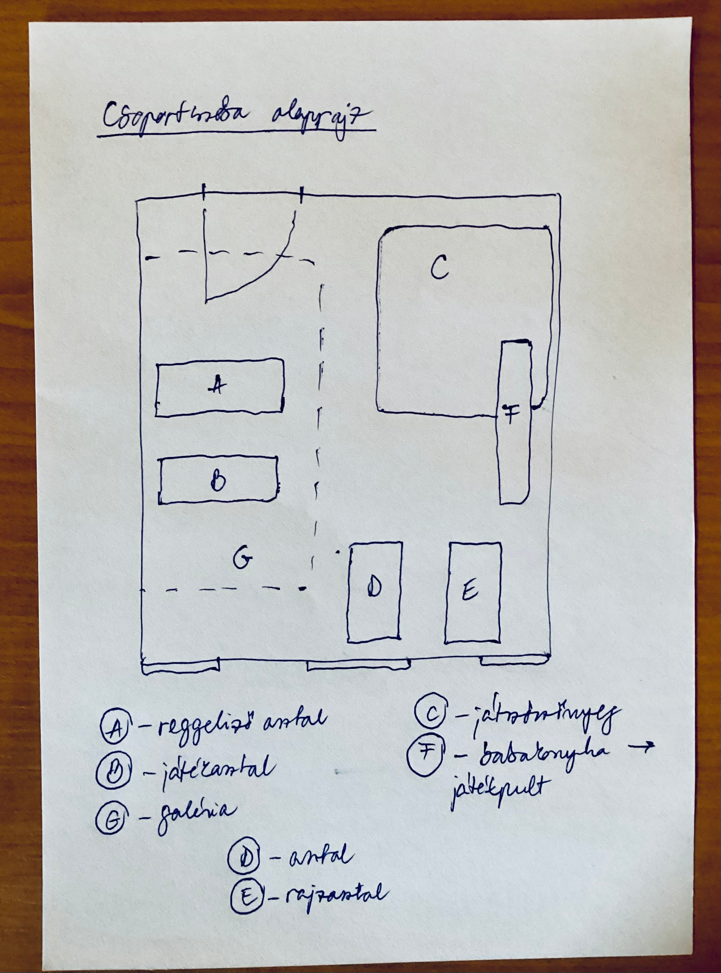 Csoportszoba alaprajz
C
A
F
B
G
D
E
A - reggeliző asztal
B - játékasztal
G - galéria
C - játszószőnyeg
F - babakonyha →
játékpult
D - asztal
E - rajzasztal